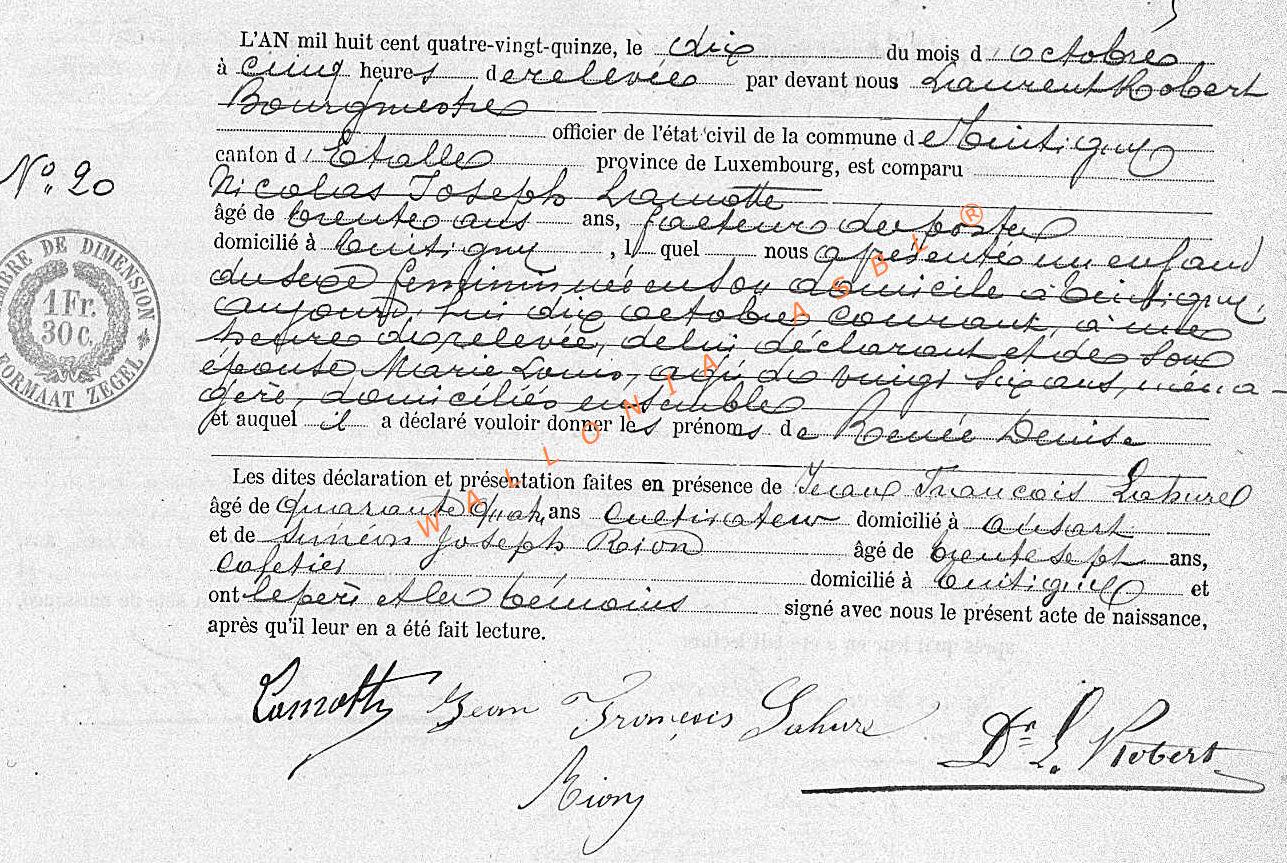 L'AN mil huit cent quatre-vingt-quinze, le dix du mois d'octobre
à cinq heures de relevée par devant nous Laurent Robert
Bourgmestre
officier de l'état civil de la commune de Tintigny
N° 20
canton d'Etalle province de Luxembourg, est comparu
Nicolas Joseph Lamotte
âgé de trente ans ans, facteur des postes
domicilié à Tintigny, lequel nous a présenté un enfant
du sexe féminin né en son domicile à Tintigny,
aujourd'hui dix octobre courant, à une
heure de relevée, de lui déclarant et de son
épouse Marie Louis, âgée de vingt six ans, ména-
gère, domiciliés ensemble
et auquel il a déclaré vouloir donner les prénoms de Renée Denise
Les dites déclaration et présentation faites en présence de Jean François Lahure
âgé de quarante quatre ans cultivateur domicilié à Ansart
et de Siméon Joseph Rion âgé de trente sept ans,
cafetier domicilié à Tintigny et
ont le père et les témoins signé avec nous le présent acte de naissance,
après qu'il leur en a été fait lecture.
Lamotte Jean François Lahure Dr L. Robert
Rion
TIMBRE DE DIMENSION
1 Fr.
30 c.
FORMAAT ZEGEL
WALLONIA ASBL ®